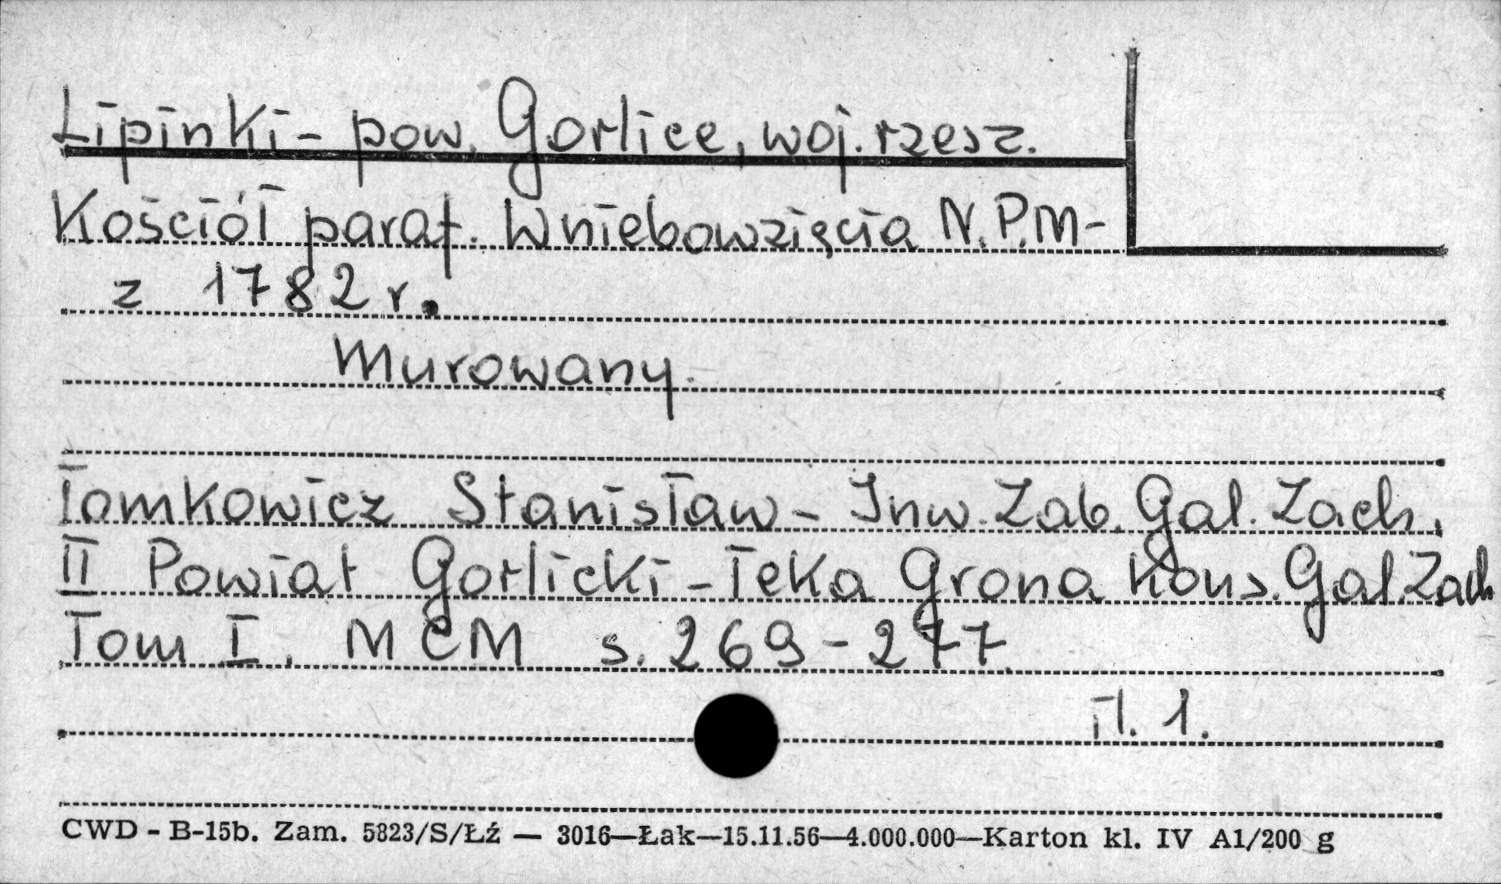 Lipinki - pow. Gorlice, woj. rzesz.
Kościół paraf. Wniebowzięcia N.P.M -
z 1782 r.
Murowany.
Tomkowicz Stanisław - Inw. Zab. Gal. Zach.
II Powiat Gorlicki - Teka Grona Kons. Gal. Zach
Tom I. MCM s. 269 - 277.
il. 1.
CWD - B-15b. Zam. 5823/S/Łź — 3016—Łak—15.11.56—4.000.000—Karton kl. IV A1/200 g